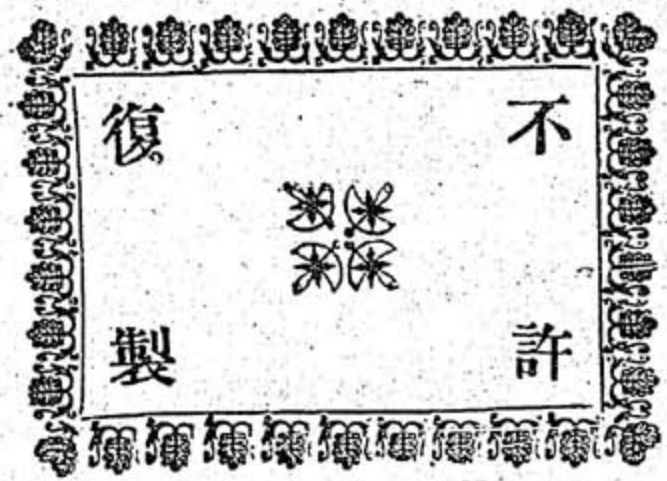 不許
復製